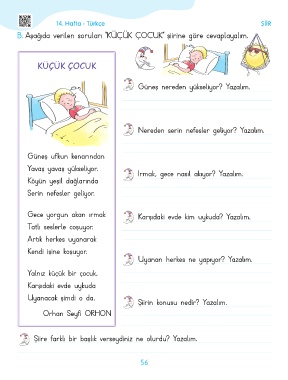 14. Hafta - Türkçe
ŞİİR
B. Aşağıda verilen soruları "KÜÇÜK ÇOCUK" şiirine göre cevaplayalım.
KÜÇÜK ÇOCUK
Güneş ufkun kenarından
Yavaş yavaş yükseliyor.
Köyün yeşil dağlarından
Serin nefesler geliyor.
Gece yorgun akan ırmak
Tatlı seslerle coşuyor.
Artık herkes uyanarak
Kendi işine koşuyor.
Yalnız küçük bir çocuk,
Karşıdaki evde uykuda
Uyanacak şimdi o da.
Orhan Seyfi ORHON
Güneş nereden yükseliyor? Yazalım.
Nereden serin nefesler geliyor? Yazalım.
Irmak, gece nasıl akıyor? Yazalım.
Karşıdaki evde kim uykuda? Yazalım.
Uyanan herkes ne yapıyor? Yazalım.
Şiirin konusu nedir? Yazalım.
Şiire farklı bir başlık verseydiniz ne olurdu? Yazalım.
56